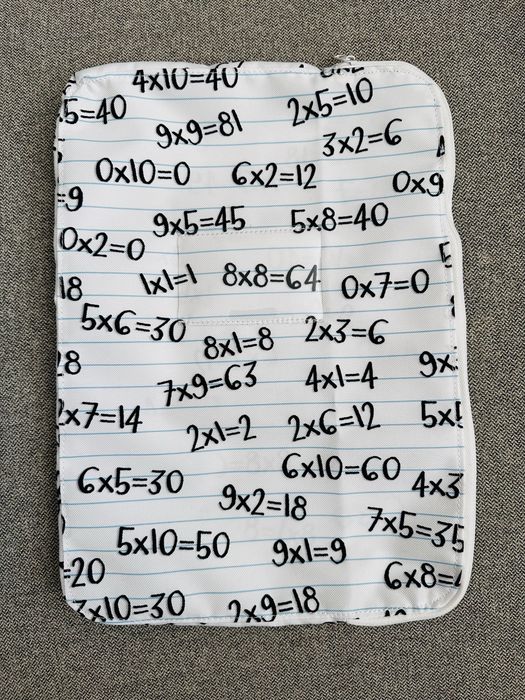 4x10=40
.5=40
2x5=10
9x9=81
3x2=6
0x10=0 6x2=12
0x9
=9
9x5=45 5x8=40
0x2=0
1x1=1 8x8=64 0x7=0
18
5x6=30
8x1=8 2x3=6
7x9=63 4x1=4 9x
2x7=14
2x1=2 2x6=12 5x
6x5=30 6x10=60 4x3
9x2=18
7x5=35
5x10=50 9x1=9
=20
6x8=
3x10=30 2x9=18